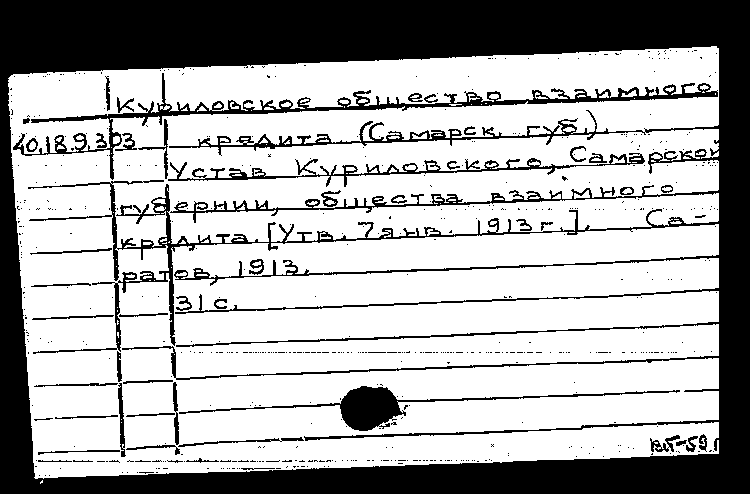 Куриловское общество взаимного
40.18.9.303 кредита (Самарск. губ.).
Устав Куриловского, Самарской
губернии, общества взаимного
кредита. [Утв. 7 янв. 1913 г.]. Са-
ратов, 1913.
31 с.